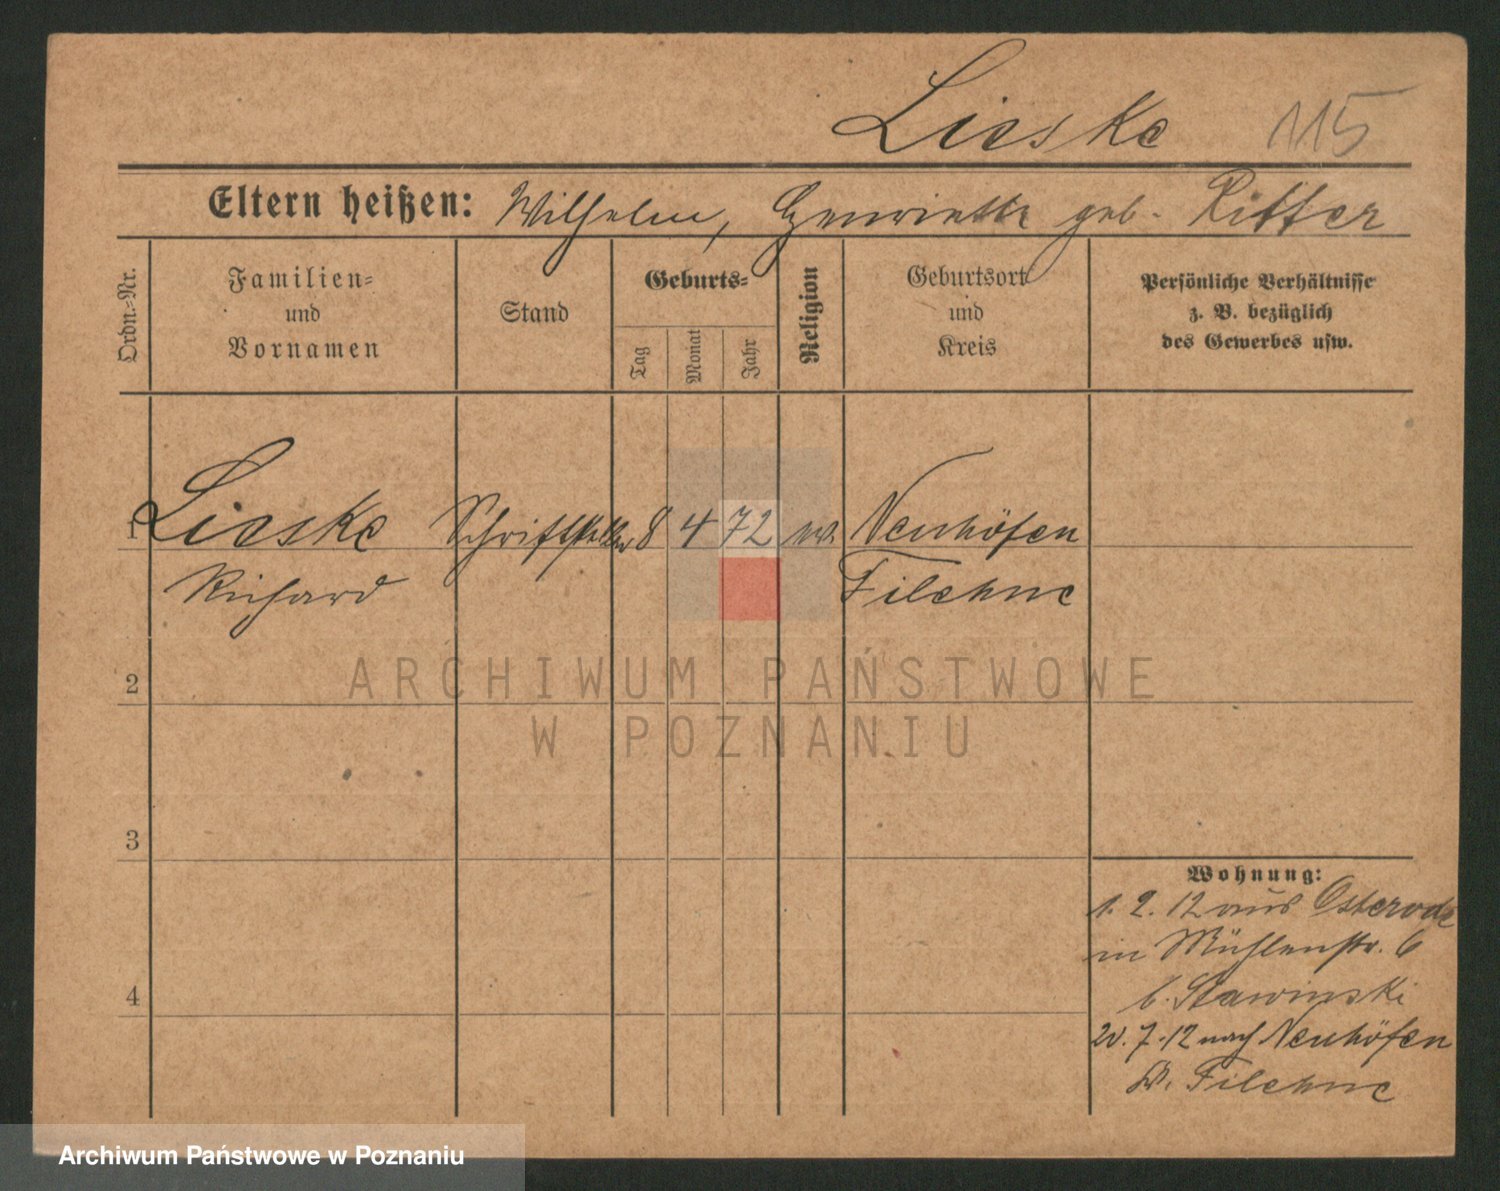 Lieske 115
Eltern heißen: Wilhelm, Henriette geb. Ritter
Ordn.-Nr.
Familien-
und
Vornamen
Stand
Geburts-
Tag
Monat
Jahr
Religion
Geburtsort
und
Kreis
Persönliche Verhältnisse
z. B. bezüglich
des Gewerbes usw.
1 Lieske Schriftsteller 8 4 72 Neuhöfen
Richard Filehne
2
3
4
Wohnung:
1. 2. 12 aus Osterode
in Mühlenstr. 6
b. Stawinski
20. 7. 12 nach Neuhöfen
Filehne
ARCHIWUM PAŃSTWOWE
W POZNANIU
Archiwum Państwowe w Poznaniu